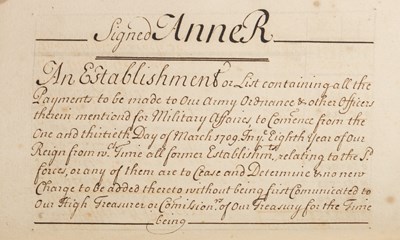 Signed Anne R
An Establishment or List containing all the
Payments to be made to Our Army Ordnance & other Officers
therein mentioned for Military Affaires, to Comence from the
One and thirtieth Day of March 1709. In ye Eighth year of Our
Reign from wch. Time all former Establishmts, relating to the Sd.
forces, or any of them are to Cease and Determine & no new
Charge to be added thereto without being first Comunicated to
Our High Treasurer or Comission.rs of Our Treasury for the Time
being